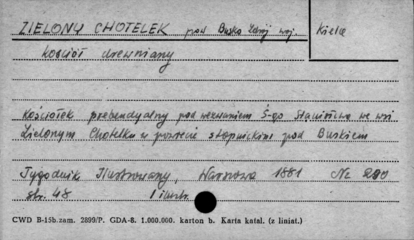 ZIELONY CHOTELEK pod Busko Zdrój woj. Kielce
kościół drewniany
Kościółek prebendyalny pod wezwaniem Ś-go Stanisława we wsi
Zielonym Chotelku w powiecie stopnickim pod Buskiem
Tygodnik Ilustrowany, Warszawa 1881 Nr 290
str. 48 1 ilustr.
CWD B-15b. zam. 2899/P. GDA-8. 1.000.000. karton b. Karta katal. (z liniat.)